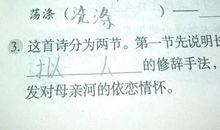 荡涤（洗涤）——
3. 这首诗分为两节。第一节先说明长
拟人的修辞手法，
发对母亲河的依恋情怀。